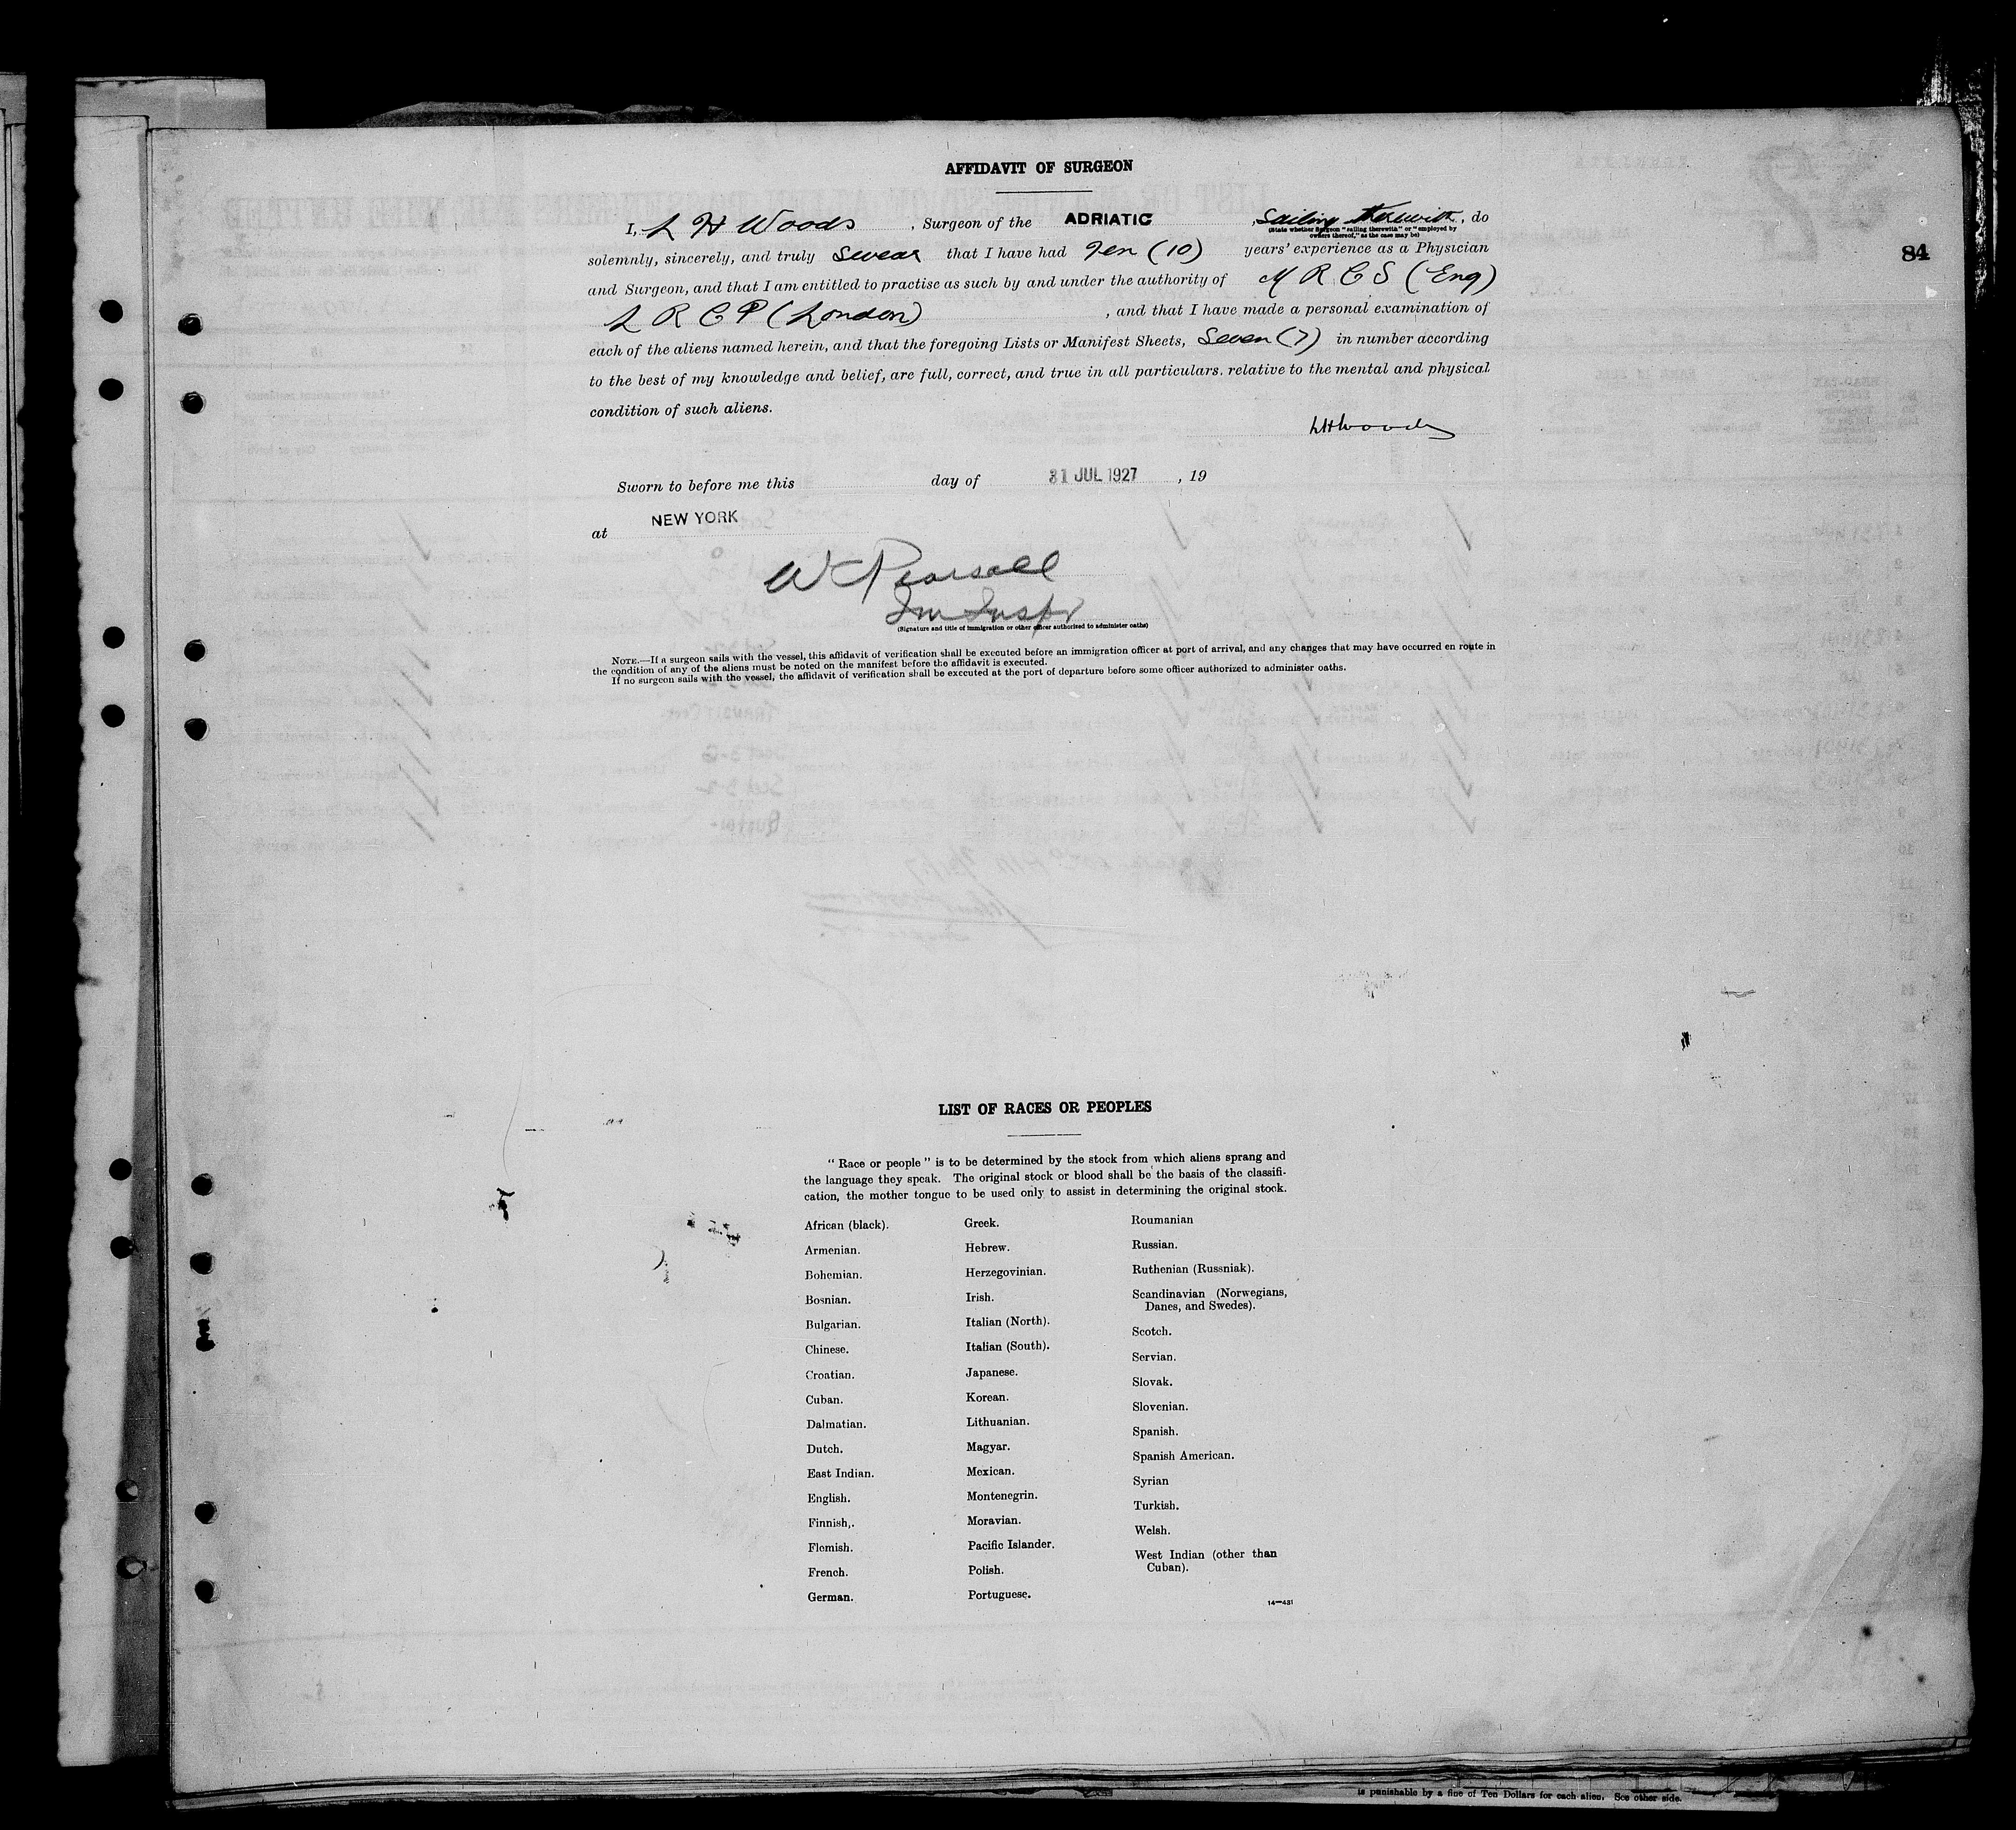 AFFIDAVIT OF SURGEON
I, L H Woods , Surgeon of the ADRIATIC , Sailing therewith , do
(State whether Surgeon "sailing therewith" or "employed by
owners thereof," as the case may be)
84
solemnly, sincerely, and truly swear that I have had Ten (10) years' experience as a Physician
and Surgeon, and that I am entitled to practise as such by and under the authority of M R C S (Eng)
L R C P (London) , and that I have made a personal examination of
each of the aliens named herein, and that the foregoing Lists or Manifest Sheets, Seven (7) in number according
to the best of my knowledge and belief, are full, correct, and true in all particulars. relative to the mental and physical
condition of such aliens.
LHWoods
Sworn to before me this day of 31 JUL 1927 , 19
at NEW YORK
W Pearsall
Im Inspr
(Signature and title of immigration or other officer authorized to administer oaths)
NOTE.—If a surgeon sails with the vessel, this affidavit of verification shall be executed before an immigration officer at port of arrival, and any changes that may have occurred en route in
the condition of any of the aliens must be noted on the manifest before the affidavit is executed.
If no surgeon sails with the vessel, the affidavit of verification shall be executed at the port of departure before some officer authorized to administer oaths.
LIST OF RACES OR PEOPLES
" Race or people " is to be determined by the stock from which aliens sprang and
the language they speak. The original stock or blood shall be the basis of the classifi-
cation, the mother tongue to be used only to assist in determining the original stock.
African (black).
Armenian.
Bohemian.
Bosnian.
Bulgarian.
Chinese.
Croatian.
Cuban.
Dalmatian.
Dutch.
East Indian.
English.
Finnish,.
Flemish.
French.
German.
Greek.
Hebrew.
Herzegovinian.
Irish.
Italian (North).
Italian (South).
Japanese.
Korean.
Lithuanian.
Magyar.
Mexican.
Montenegrin.
Moravian.
Pacific Islander.
Polish.
Portuguese.
Roumanian
Russian.
Ruthenian (Russniak).
Scandinavian (Norwegians,
Danes, and Swedes).
Scotch.
Servian.
Slovak.
Slovenian.
Spanish.
Spanish American.
Syrian
Turkish.
Welsh.
West Indian (other than
Cuban).
14—431
is punishable by a fine of Ten Dollars for each alien. See other side.